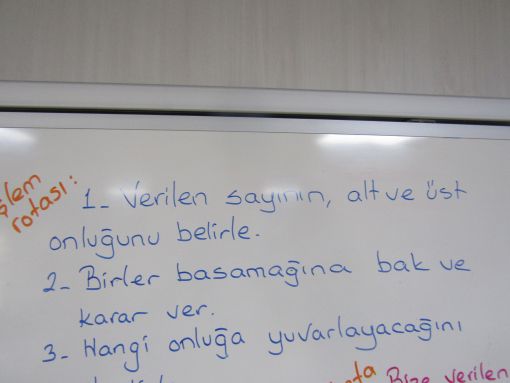 işlem
rotası:
1- Verilen sayının, alt ve üst
onluğunu belirle.
2- Birler basamağına bak ve
karar ver.
3- Hangi onluğa yuvarlayacağını
Bize verilen